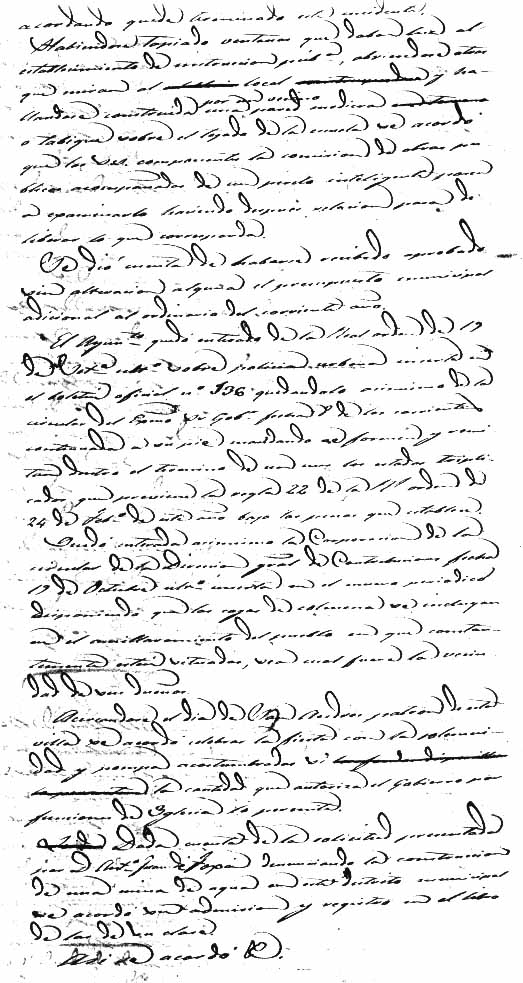 acordando queda terminado este incidente.
Habiendose tapiado ventanas que daban luz al
establecimiento de instruccion publica, abriendose otras
que miran al local y ha-
llandose construida una pared medianera
por el vecino
o tabique sobre el tejado de la escuela se acordó
que los Sres. componentes la comision de obras pu-
blicas acompañados de un perito inteligente pasen
a examinarlo haciendo despues relacion para de-
liberar lo que corresponda.
Se dió cuenta de haberse recibido aprobado
sin alteracion alguna el presupuesto municipal
adicional al ordinario del corriente año.
El Ayunto. quedó enterado de la Real orden de 19
de Octe. ulto. sobre policia urbana inserta en
el boletin oficial no. 136 quedandolo asimismo de la
circular del Exmo. Sr. Gobr. fecha de los corrientes
continuada a su pie mandando se formen y remi-
tan dentro el termino de un mes los estados tripli-
cados que previene la regla 22 de la Rl. orden de
24 de Febo. de este año bajo las penas que establece.
Quedó enterada asimismo la Corporacion de la
circular de la Direccion gral. de Contribuciones fecha
19 de Octubre ulto. inserta en el mismo periodico
disponiendo que las cajas de colmenas se incluyan
en el amillaramiento del pueblo en que constan-
temente esten situadas, sea cual fuere la vecin-
dad de sus dueños.
Acercandose el dia de San Andres patron de esta
villa se acordó celebrar la fiesta con la solemni-
dad y pompa acostumbradas si
la cantidad que autoriza el Gobierno por
funciones de Iglesia lo permite.
Dada cuenta de la solicitud presentada
por D. Anto. Juan de denunciando la construccion
de una mina de agua en este distrito municipal
se acordó su admision y registro en el libro
de los de su clase.
Asi se acordó &.